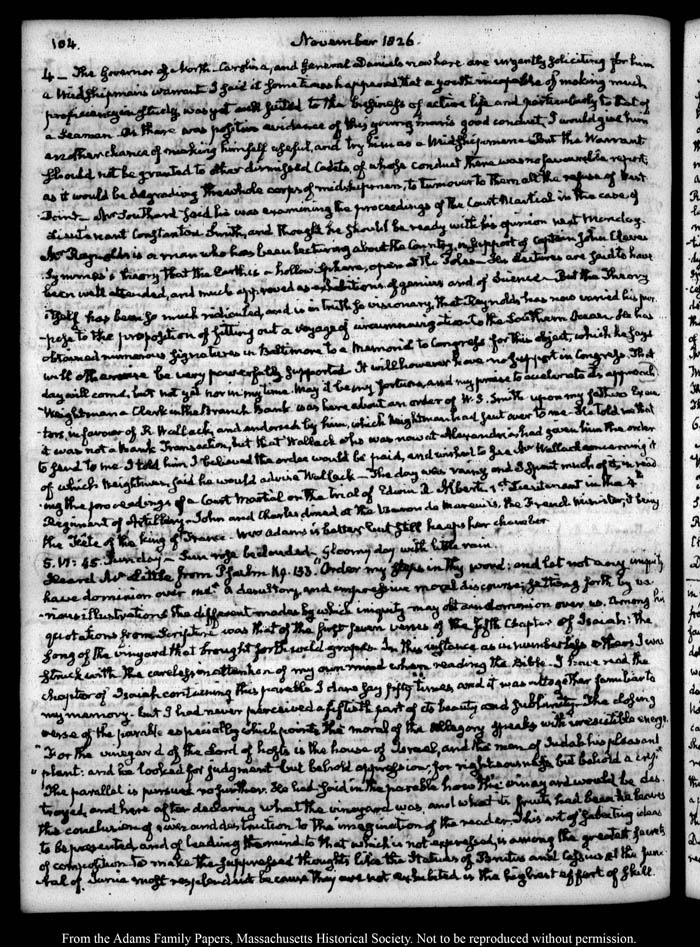 104.
November 1826.
4 — The Governor of North-Carolina, and General Daniels now here are urgently soliciting for him
a Midshipman's warrant. I said it sometimes happened that a youth incapable of making much
proficiency in study was yet well suited to the business of active life and particularly to that of
a Seaman. As there was positive evidence of this young man's good conduct, I would give him
another chance of making himself useful, and try him as a Midshipman — But the Warrant
should not be granted to other dismissed Cadets, of whose conduct there was no favourable report;
as it would be degrading the whole corps of midshipmen, to turn over to them all the refuse of West-
Point — Mr Southard said he was examining the proceedings of the Court Martial in the case of
Lieutenant Constantine Smith, and thought he should be ready with his opinion next Monday.
Mr Reynolds is a man who has been lecturing about the Country, in support of Captain John Cleves
Symmes's theory that the Earth is a hollow Sphere, open at the Poles — His Lectures are said to have
been well attended, and much approved as exhibitions of genius and of Science — But the Theory
itself has been so much ridiculed, and is in truth so visionary, that Reynolds has now varied his pur-
pose to the proposition of fitting out a voyage of circumnavigation to the Southern Ocean — He has
obtained numerous signatures in Baltimore to a Memorial to Congress for this object, which he says
will otherwise be very powerfully supported. It will however have no support in Congress. That
day will come, but not yet nor in my time. May it be my fortune, and my praise to accelerate its approach
Weightman a Clerk in the Branch Bank was here about an order of W. S. Smith upon my father's Execu-
tors, in favour of R. Wallack, and endorsed by him, which Weightman had sent over to me. He told me that
it was not a Bank Transaction, but that Wallack who was now at Alexandria had given him the order
to send to me. I told him I believed the order would be paid, and wished to see Mr Wallack concerning it
of which Weightman said he would advise Wallack — The day was rainy and I spent much of it in read-
ing the proceedings of a Court Martial on the trial of Edwin R. Alberti, 1st Lieutenant in the 4th
Regiment of Artillery — John and Charles dined at the Baron de Mareuil's, the French Minister, it being
the Fête of the king of France. Mrs Adams is better but still keeps her chamber.
5. VI: 45. Sunday — Sun rose beclouded — Gloomy day with little rain.
Heard Mr Little from Psalm 119. 133. "Order my steps in thy word: and let not any iniquity
have dominion over me." A desultory, and impressive moral discourse; setting forth by va-
rious illustrations the different modes by which iniquity may obtain dominion over us. Among his
quotations from Scripture was that of the first seven verses of the fifth Chapter of Isaiah; the
song of the vineyard that brought forth wild grapes. In this instance as in numberless others I was
struck with the careless inattention of my own mind when reading the Bible. I have read the
chapter of Isaiah containing this parable I dare say fifty times and it was altogether familiar to
my memory. but I had never perceived a fiftieth part of its beauty and sublimity. The closing
verse of the parable especially which points the moral of the Allegory speaks with irresistible energy.
"For the vineyard of the Lord of hosts is the house of Israel, and the men of Judah his pleasant
"plant: and he looked for judgment but behold oppression; for righteousness but behold a cry."
The parallel is pursued no further. He had said in the parable how the vineyard would be des-
troyed, and here after declaring what the vineyard was, and what its fruits had been he leaves
the conclusion of ruin and destruction to the imagination of the reader. This art of selecting ideas
to be presented, and of leading the mind to that which is not expressed, is among the greatest secrets
of composition. to make the suppressed thoughts like the Statues of Brutus and Cassius at the fune-
ral of Junia most resplendent because they are not exhibited is the highest effort of skill.
From the Adams Family Papers, Massachusetts Historical Society. Not to be reproduced without permission.